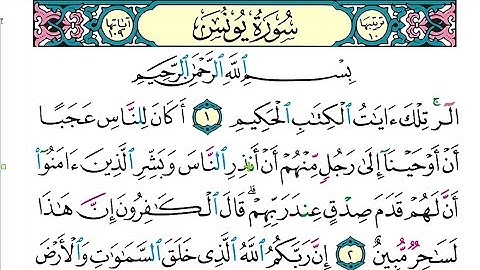 ترتيبها ١٠ سُورَةُ يُونُسَ آياتها ١٠٩
بِسْمِ ٱللَّهِ ٱلرَّحْمَٰنِ ٱلرَّحِيمِ
الٓر تِلْكَ ءَايَٰتُ ٱلْكِتَٰبِ ٱلْحَكِيمِ ١ أَكَانَ لِلنَّاسِ عَجَبًا
أَنْ أَوْحَيْنَآ إِلَىٰ رَجُلٍ مِّنْهُمْ أَنْ أَنذِرِ ٱلنَّاسَ وَبَشِّرِ ٱلَّذِينَ ءَامَنُوٓا۟
أَنَّ لَهُمْ قَدَمَ صِدْقٍ عِندَ رَبِّهِمْ ۗ قَالَ ٱلْكَٰفِرُونَ إِنَّ هَٰذَا
لَسَٰحِرٌ مُّبِينٌ ٢ إِنَّ رَبَّكُمُ ٱللَّهُ ٱلَّذِى خَلَقَ ٱلسَّمَٰوَٰتِ وَٱلْأَرْضَ